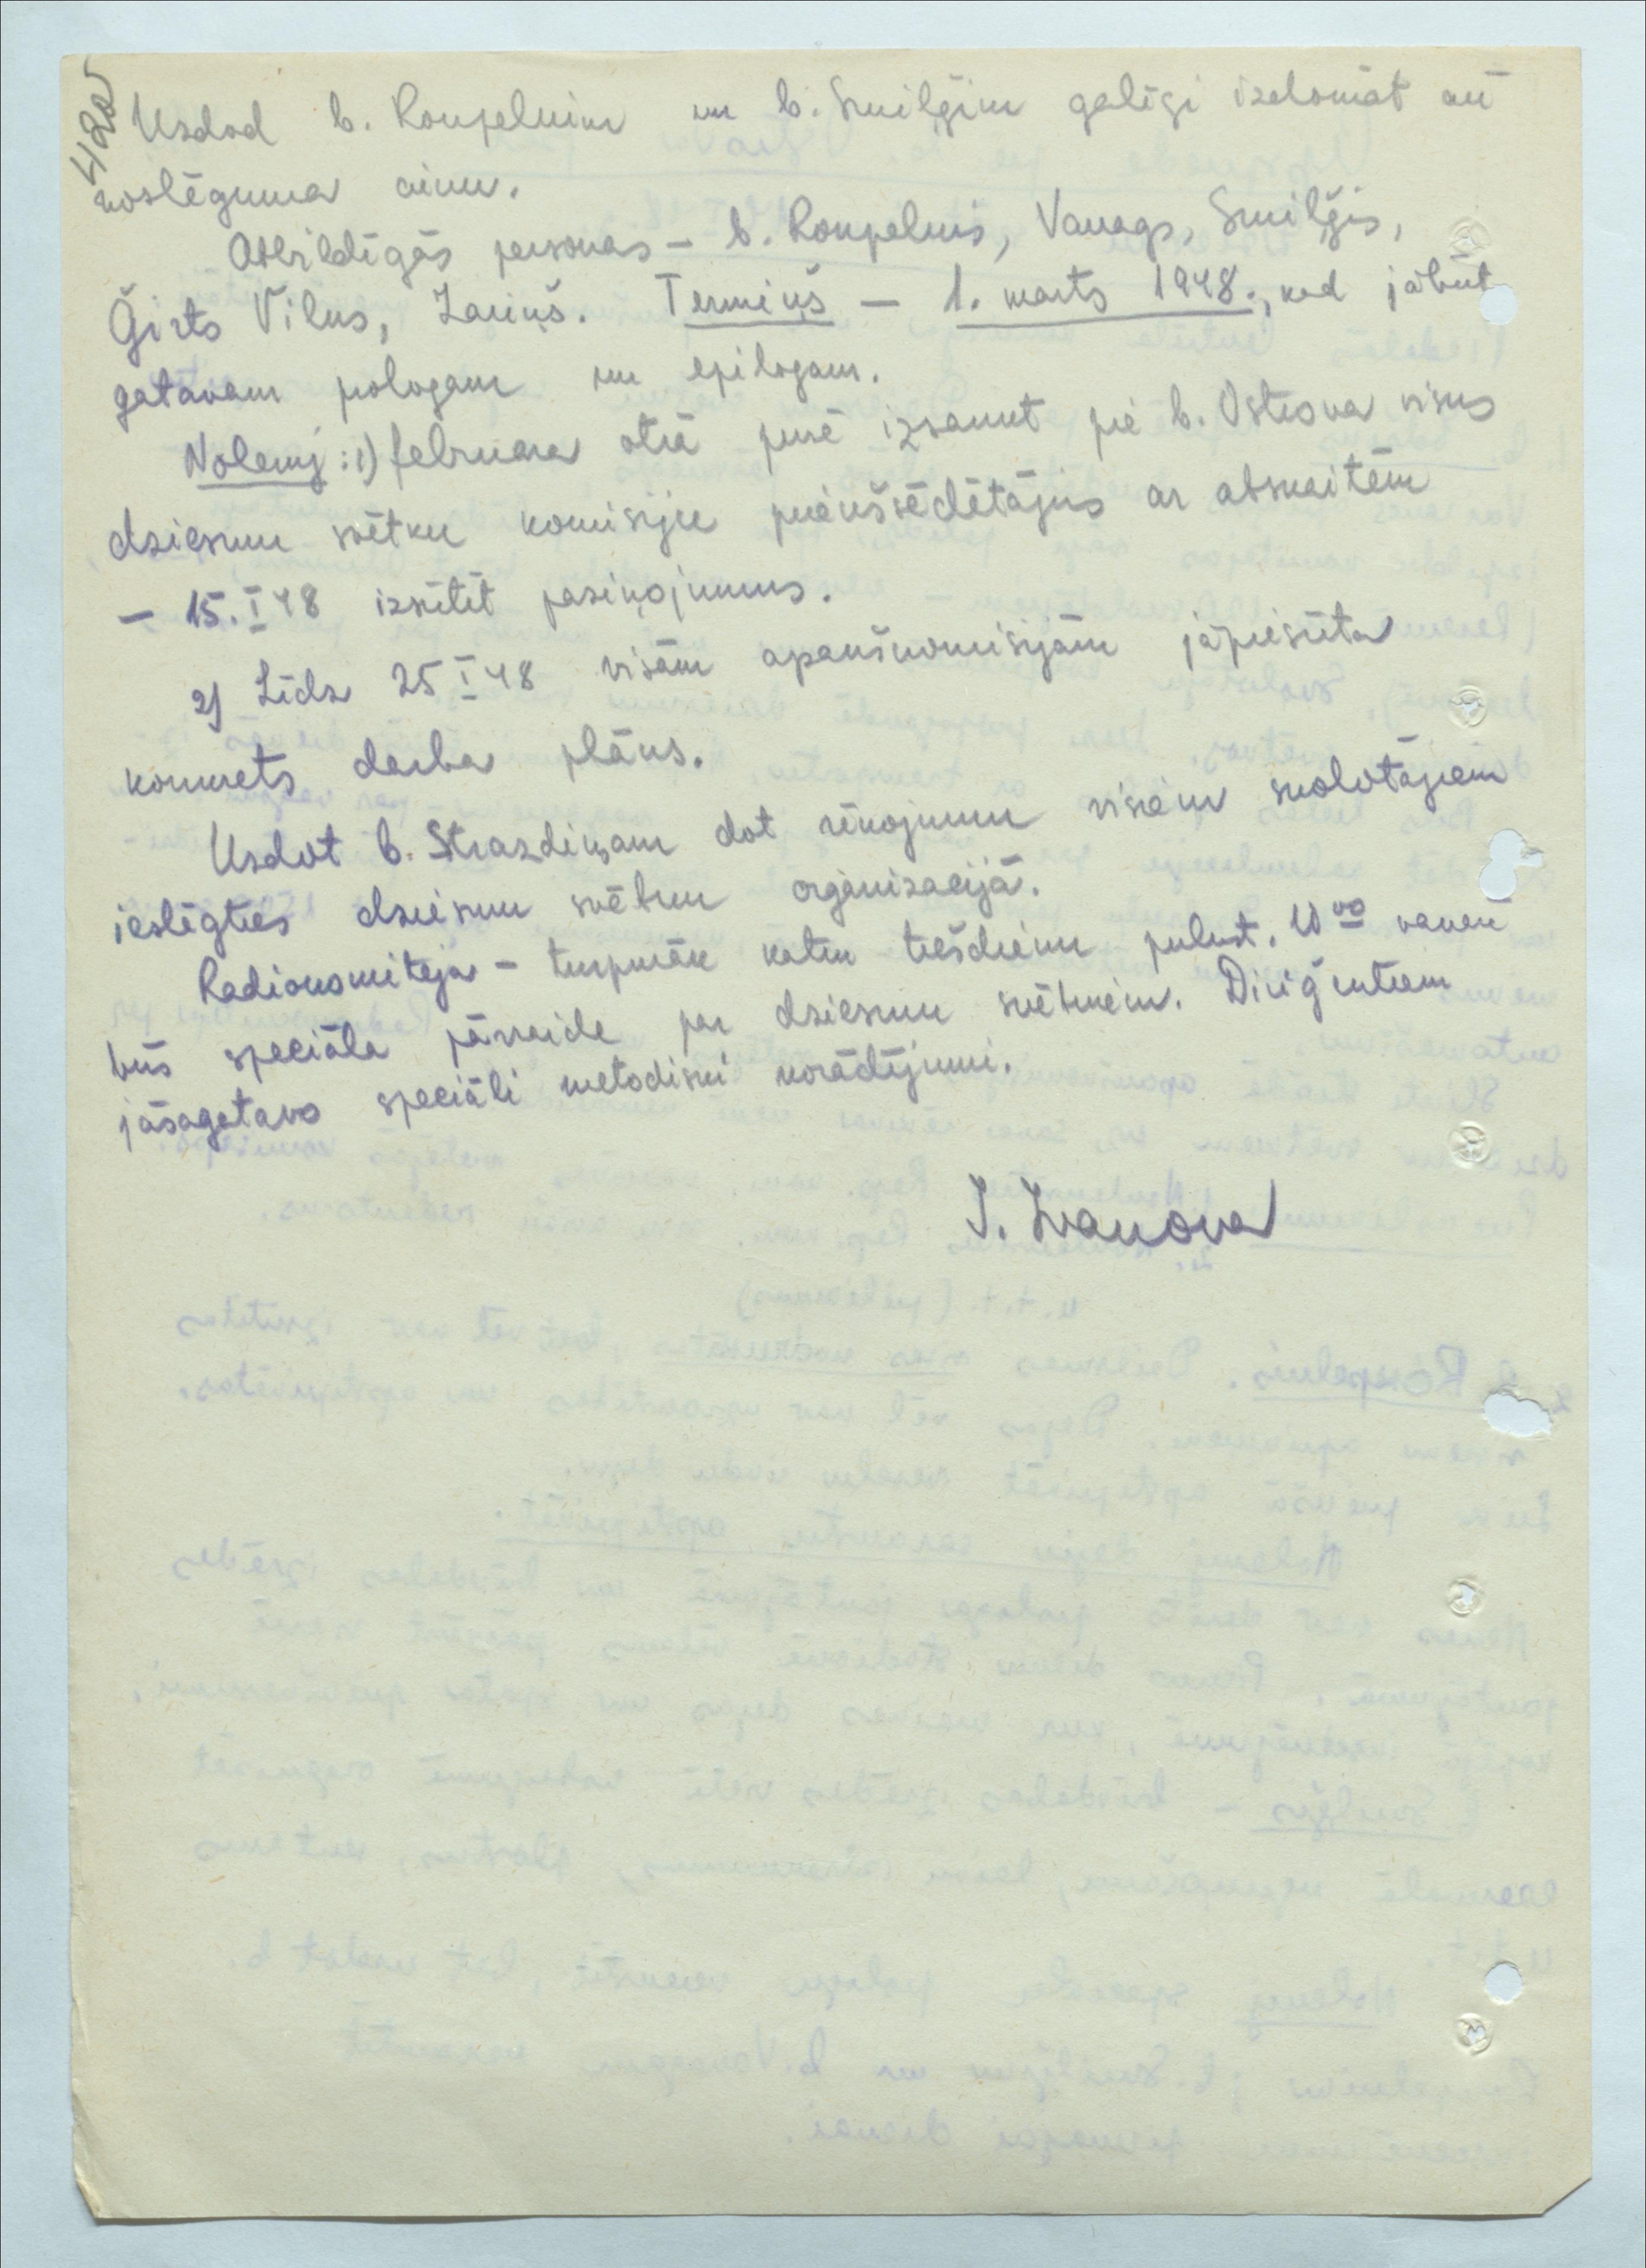 42a
Uzdod b. Roupelnim un b. Smilģim galīgi izdomāt arī
noslēguma ainu.
Atbildīgās personas – b. Roupelnis, Vanags, Smilģis,
Ģirts Vilks, Zariņš. Termiņš – 1. marts 1948., kad jābūt
gatavam prologam un epilogam.
Nolemj: 1) februara otrā pusē izsaukt pie b. Ostrova visus
dziesmu svētku komisiju priekšsēdētājus ar atskaitēm
– 15.I 48 izsūtīt paziņojumus.
2) Līdz 25 I 48 visām apakškomisijām jāpiesūta
konkrets darba plāns.
Uzdot b. Strazdiņam dot rīkojumu visiem skolotājiem
ieslēgties dziesmu svētku organizacijā.
Radiokomiteja – turpmāk katru trešdienu pulkst. 10 vakarā
būs speciāla pārraide par dziesmu svētkiem. Diriģentiem
jāsagatavo speciāli metodiski norādījumi.
I. Ivanova